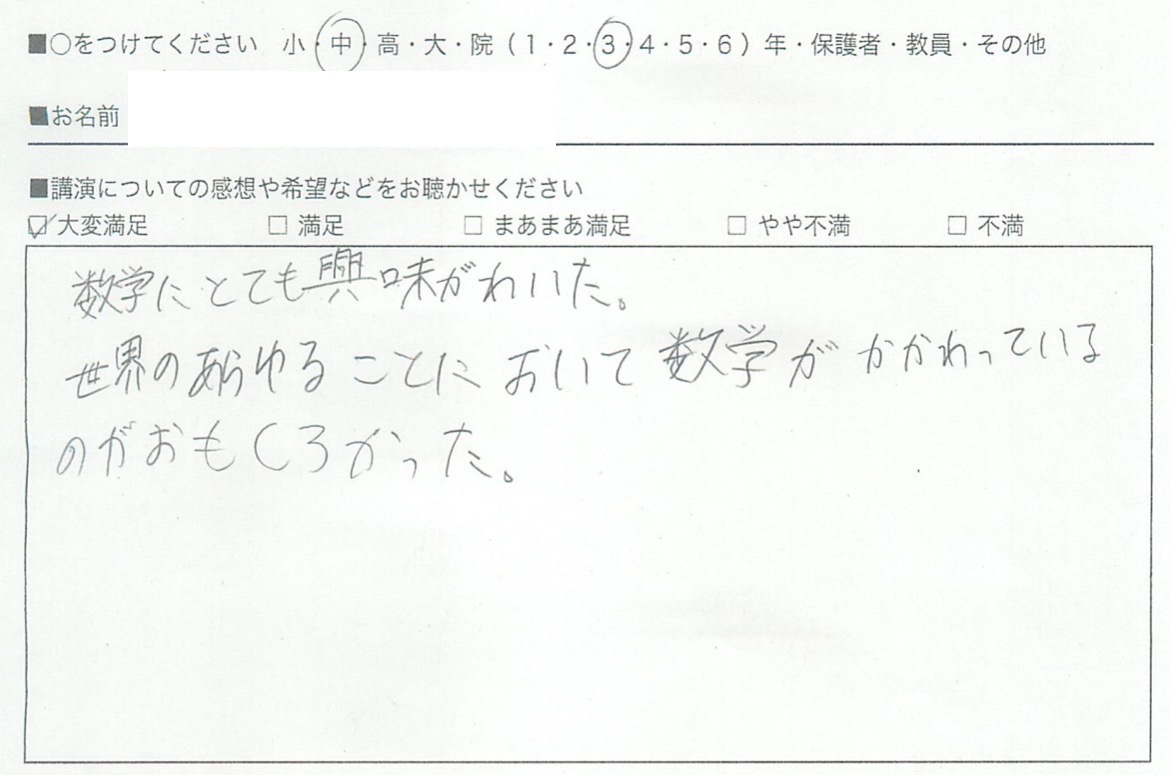 ■○をつけてください 小・中・高・大・院（1・2・3・4・5・6）年・保護者・教員・その他
■お名前
■講演についての感想や希望などをお聴かせください
☑大変満足 □ 満足 □ まあまあ満足 □ やや不満 □ 不満
数学にとても興味がわいた。
世界のあらゆることにおいて数学がかかわっている
のがおもしろかった。